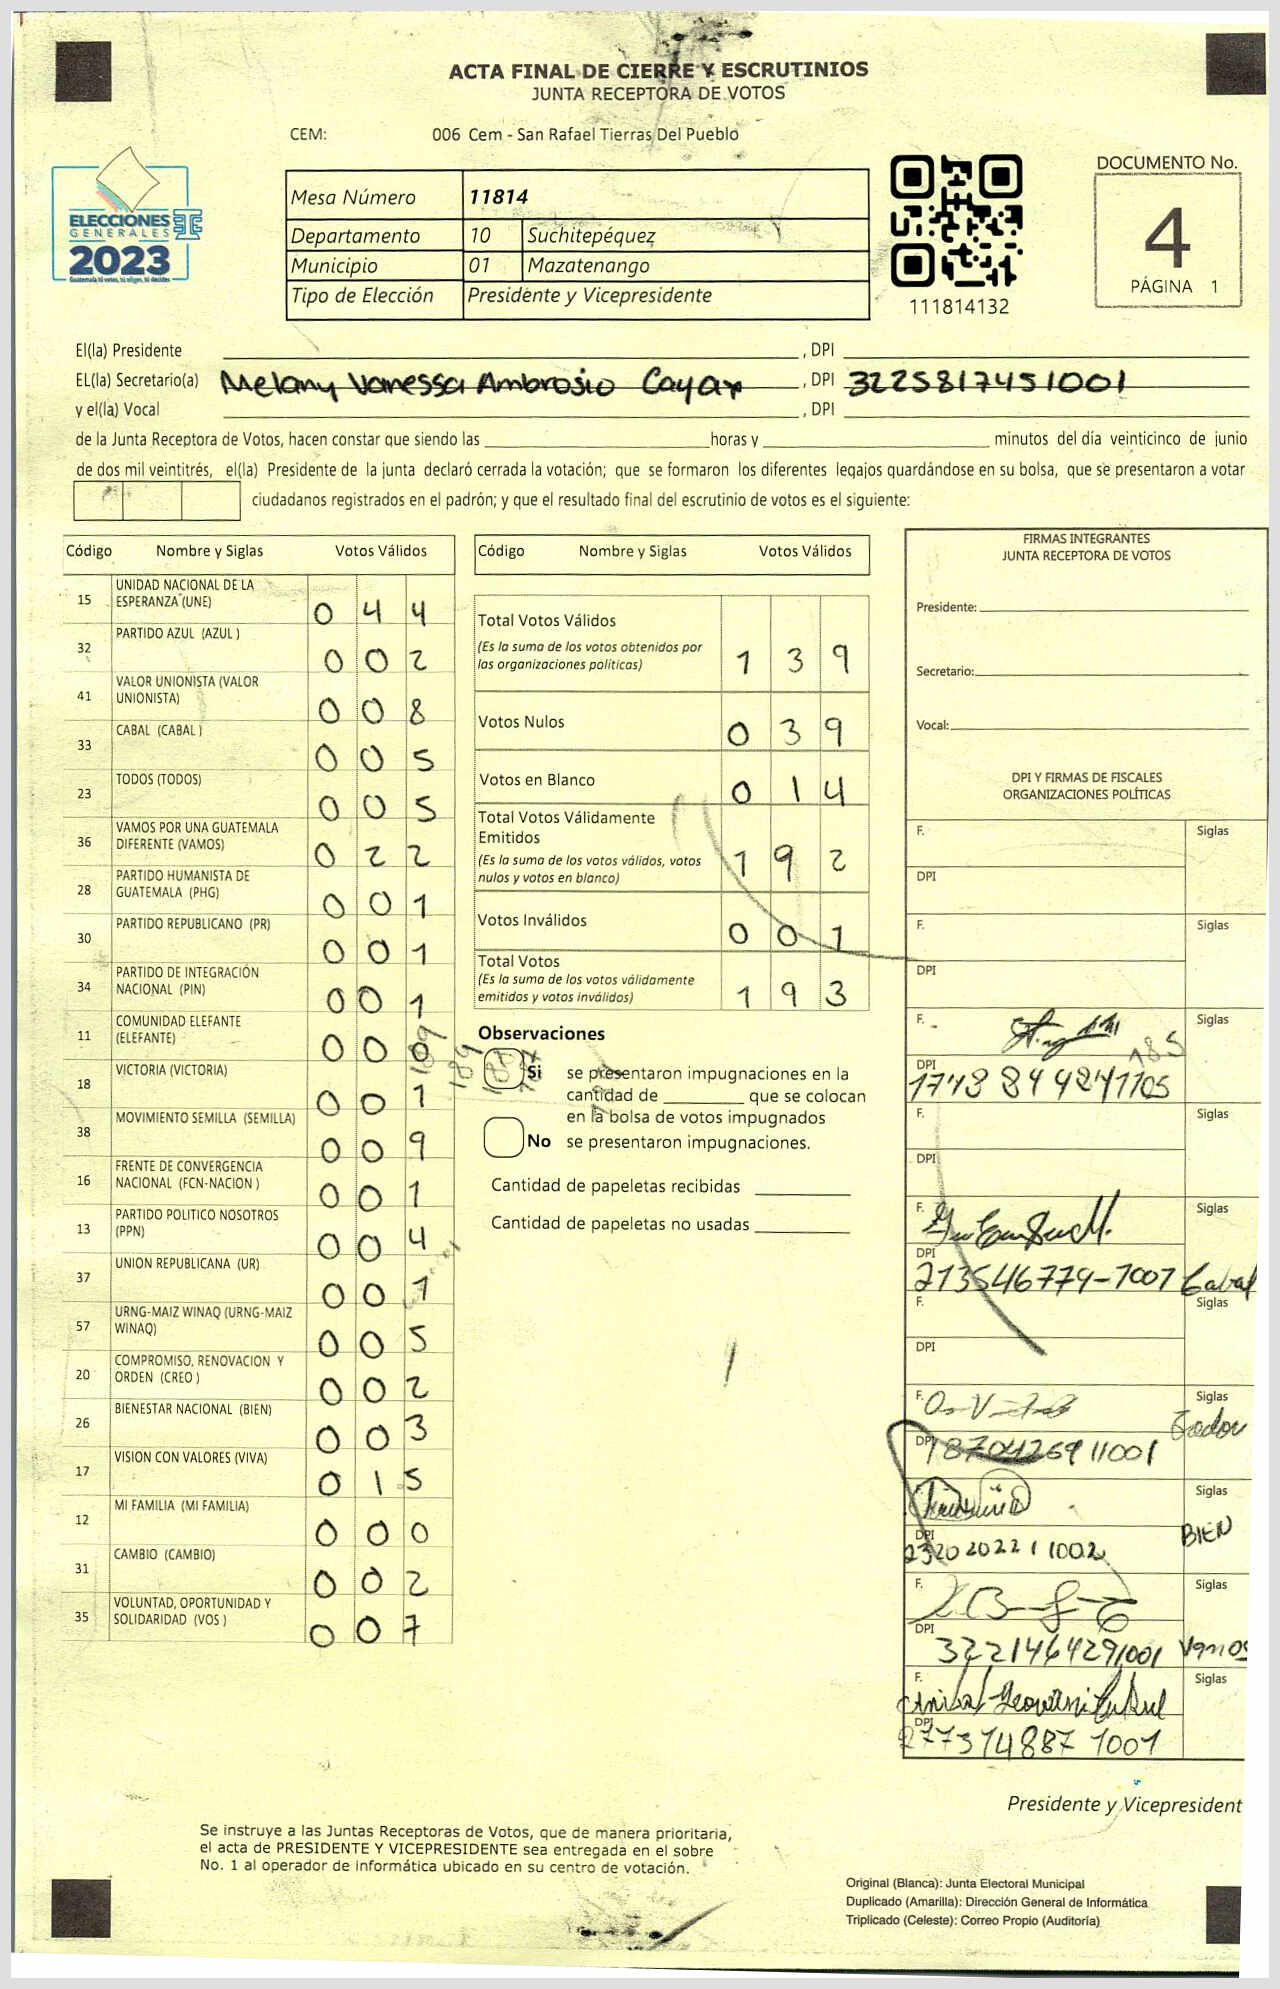 ACTA FINAL DE CIERRE Y ESCRUTINIOS
JUNTA RECEPTORA DE VOTOS
CEM: 006 Cem - San Rafael Tierras Del Pueblo
ELECCIONES
GENERALES
2023
Guatemala tú votas, tú eliges, tú decides
Mesa Número 11814
Departamento 10 Suchitepéquez
Municipio 01 Mazatenango
Tipo de Elección Presidente y Vicepresidente
111814132
DOCUMENTO No.
4
PÁGINA 1
El(la) Presidente , DPI
EL(la) Secretario(a) Melany Vanessa Ambrosio Cayax , DPI 3225817451001
y el(la) Vocal , DPI
de la Junta Receptora de Votos, hacen constar que siendo las horas y minutos del día veinticinco de junio
de dos mil veintitrés, el(la) Presidente de la junta declaró cerrada la votación; que se formaron los diferentes legajos guardándose en su bolsa, que se presentaron a votar
ciudadanos registrados en el padrón; y que el resultado final del escrutinio de votos es el siguiente:
Código Nombre y Siglas Votos Válidos
15 UNIDAD NACIONAL DE LA ESPERANZA (UNE) 0 4 4
32 PARTIDO AZUL (AZUL ) 0 0 2
41 VALOR UNIONISTA (VALOR UNIONISTA) 0 0 8
33 CABAL (CABAL ) 0 0 5
23 TODOS (TODOS) 0 0 5
36 VAMOS POR UNA GUATEMALA DIFERENTE (VAMOS) 0 2 2
28 PARTIDO HUMANISTA DE GUATEMALA (PHG) 0 0 1
30 PARTIDO REPUBLICANO (PR) 0 0 1
34 PARTIDO DE INTEGRACIÓN NACIONAL (PIN) 0 0 1
11 COMUNIDAD ELEFANTE (ELEFANTE) 0 0 0
18 VICTORIA (VICTORIA) 0 0 1
38 MOVIMIENTO SEMILLA (SEMILLA) 0 0 9
16 FRENTE DE CONVERGENCIA NACIONAL (FCN-NACION ) 0 0 1
13 PARTIDO POLITICO NOSOTROS (PPN) 0 0 4
37 UNION REPUBLICANA (UR) 0 0 1
57 URNG-MAIZ WINAQ (URNG-MAIZ WINAQ) 0 0 5
20 COMPROMISO, RENOVACION Y ORDEN (CREO ) 0 0 2
26 BIENESTAR NACIONAL (BIEN) 0 0 3
17 VISION CON VALORES (VIVA) 0 1 5
12 MI FAMILIA (MI FAMILIA) 0 0 0
31 CAMBIO (CAMBIO) 0 0 2
35 VOLUNTAD, OPORTUNIDAD Y SOLIDARIDAD (VOS ) 0 0 7
Código Nombre y Siglas Votos Válidos
Total Votos Válidos
(Es la suma de los votos obtenidos por
las organizaciones políticas) 1 3 9
Votos Nulos 0 3 9
Votos en Blanco 0 1 4
Total Votos Válidamente
Emitidos
(Es la suma de los votos válidos, votos
nulos y votos en blanco) 1 9 2
Votos Inválidos 0 0 1
Total Votos
(Es la suma de los votos válidamente
emitidos y votos inválidos) 1 9 3
Observaciones
Si se presentaron impugnaciones en la
cantidad de que se colocan
en la bolsa de votos impugnados
No se presentaron impugnaciones.
Cantidad de papeletas recibidas
Cantidad de papeletas no usadas
189
189
FIRMAS INTEGRANTES
JUNTA RECEPTORA DE VOTOS
Presidente:
Secretario:
Vocal:
DPI Y FIRMAS DE FISCALES
ORGANIZACIONES POLÍTICAS
F. Siglas
DPI
F. Siglas
DPI
F. Siglas
185
DPI
F. Siglas
DPI
F. Siglas
DPI
213546779-1001 Cabal
F. Siglas
DPI
F. Siglas
Todos
DPI 1870426911001
F. Siglas
BIEN
DPI
2320 20221 1002
F. Siglas
DPI
3221464291001 Vamos
F. Siglas
DPI
277314887 1001
Presidente y Vicepresident
Se instruye a las Juntas Receptoras de Votos, que de manera prioritaria,
el acta de PRESIDENTE Y VICEPRESIDENTE sea entregada en el sobre
No. 1 al operador de informática ubicado en su centro de votación.
Original (Blanca): Junta Electoral Municipal
Duplicado (Amarilla): Dirección General de Informática
Triplicado (Celeste): Correo Propio (Auditoría)